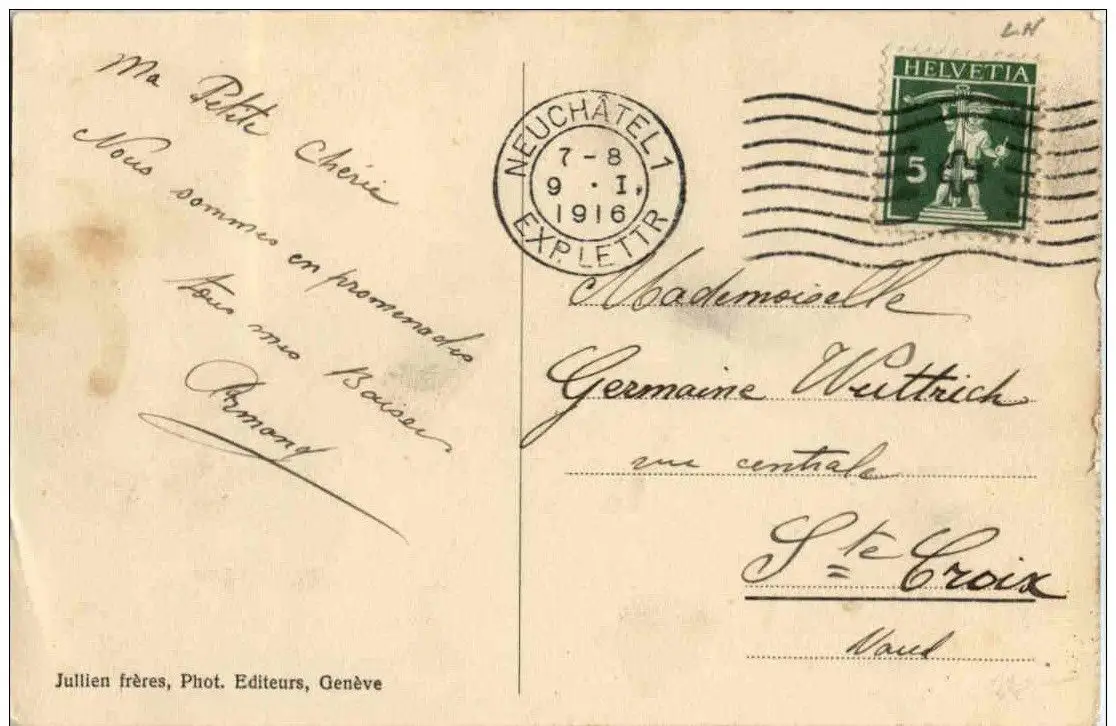 Ma Petite Chérie
Nous sommes en promenades
tous mes Baisers
Armand
Jullien frères, Phot. Editeurs, Genève
NEUCHÂTEL 1
7 - 8
9 . I.
1916
EXP. LETTR
HELVETIA
5
Mademoiselle
Germaine Wuttrich
rue centrale
Ste Croix
Vaud